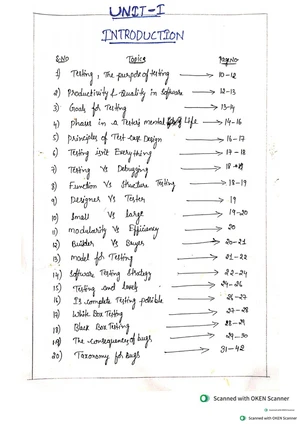 UNIT-I
INTRODUCTION
S.NO Topics PageNO
1) Testing, The purpose of testing → 10-12
2) Productivity & Quality in Software → 12-13
3) Goals for Testing → 13-14
4) Phases in a Tester's mental Life → 14-16
5) Principles of Test case Design → 16-17
6) Testing isn't Everything → 17-18
7) Testing Vs Debugging → 18
8) Function Vs Structure Testing → 18-19
9) Designer Vs Tester → 19
10) Small Vs large → 19-20
11) modularity Vs Efficiency → 20
12) Builder Vs Buyer → 20-21
13) model for Testing → 21-22
14) Software Testing Strategy → 22-24
15) Testing and levels → 24-26
16) Is complete Testing possible → 26-27
17) White Box Testing → 27-28
18) Black Box Testing → 28-29
19) The consequences of bugs → 29-30
20) Taxonomy for bugs → 31-42
Scanned with OKEN Scanner
Scanned with OKEN Scanner